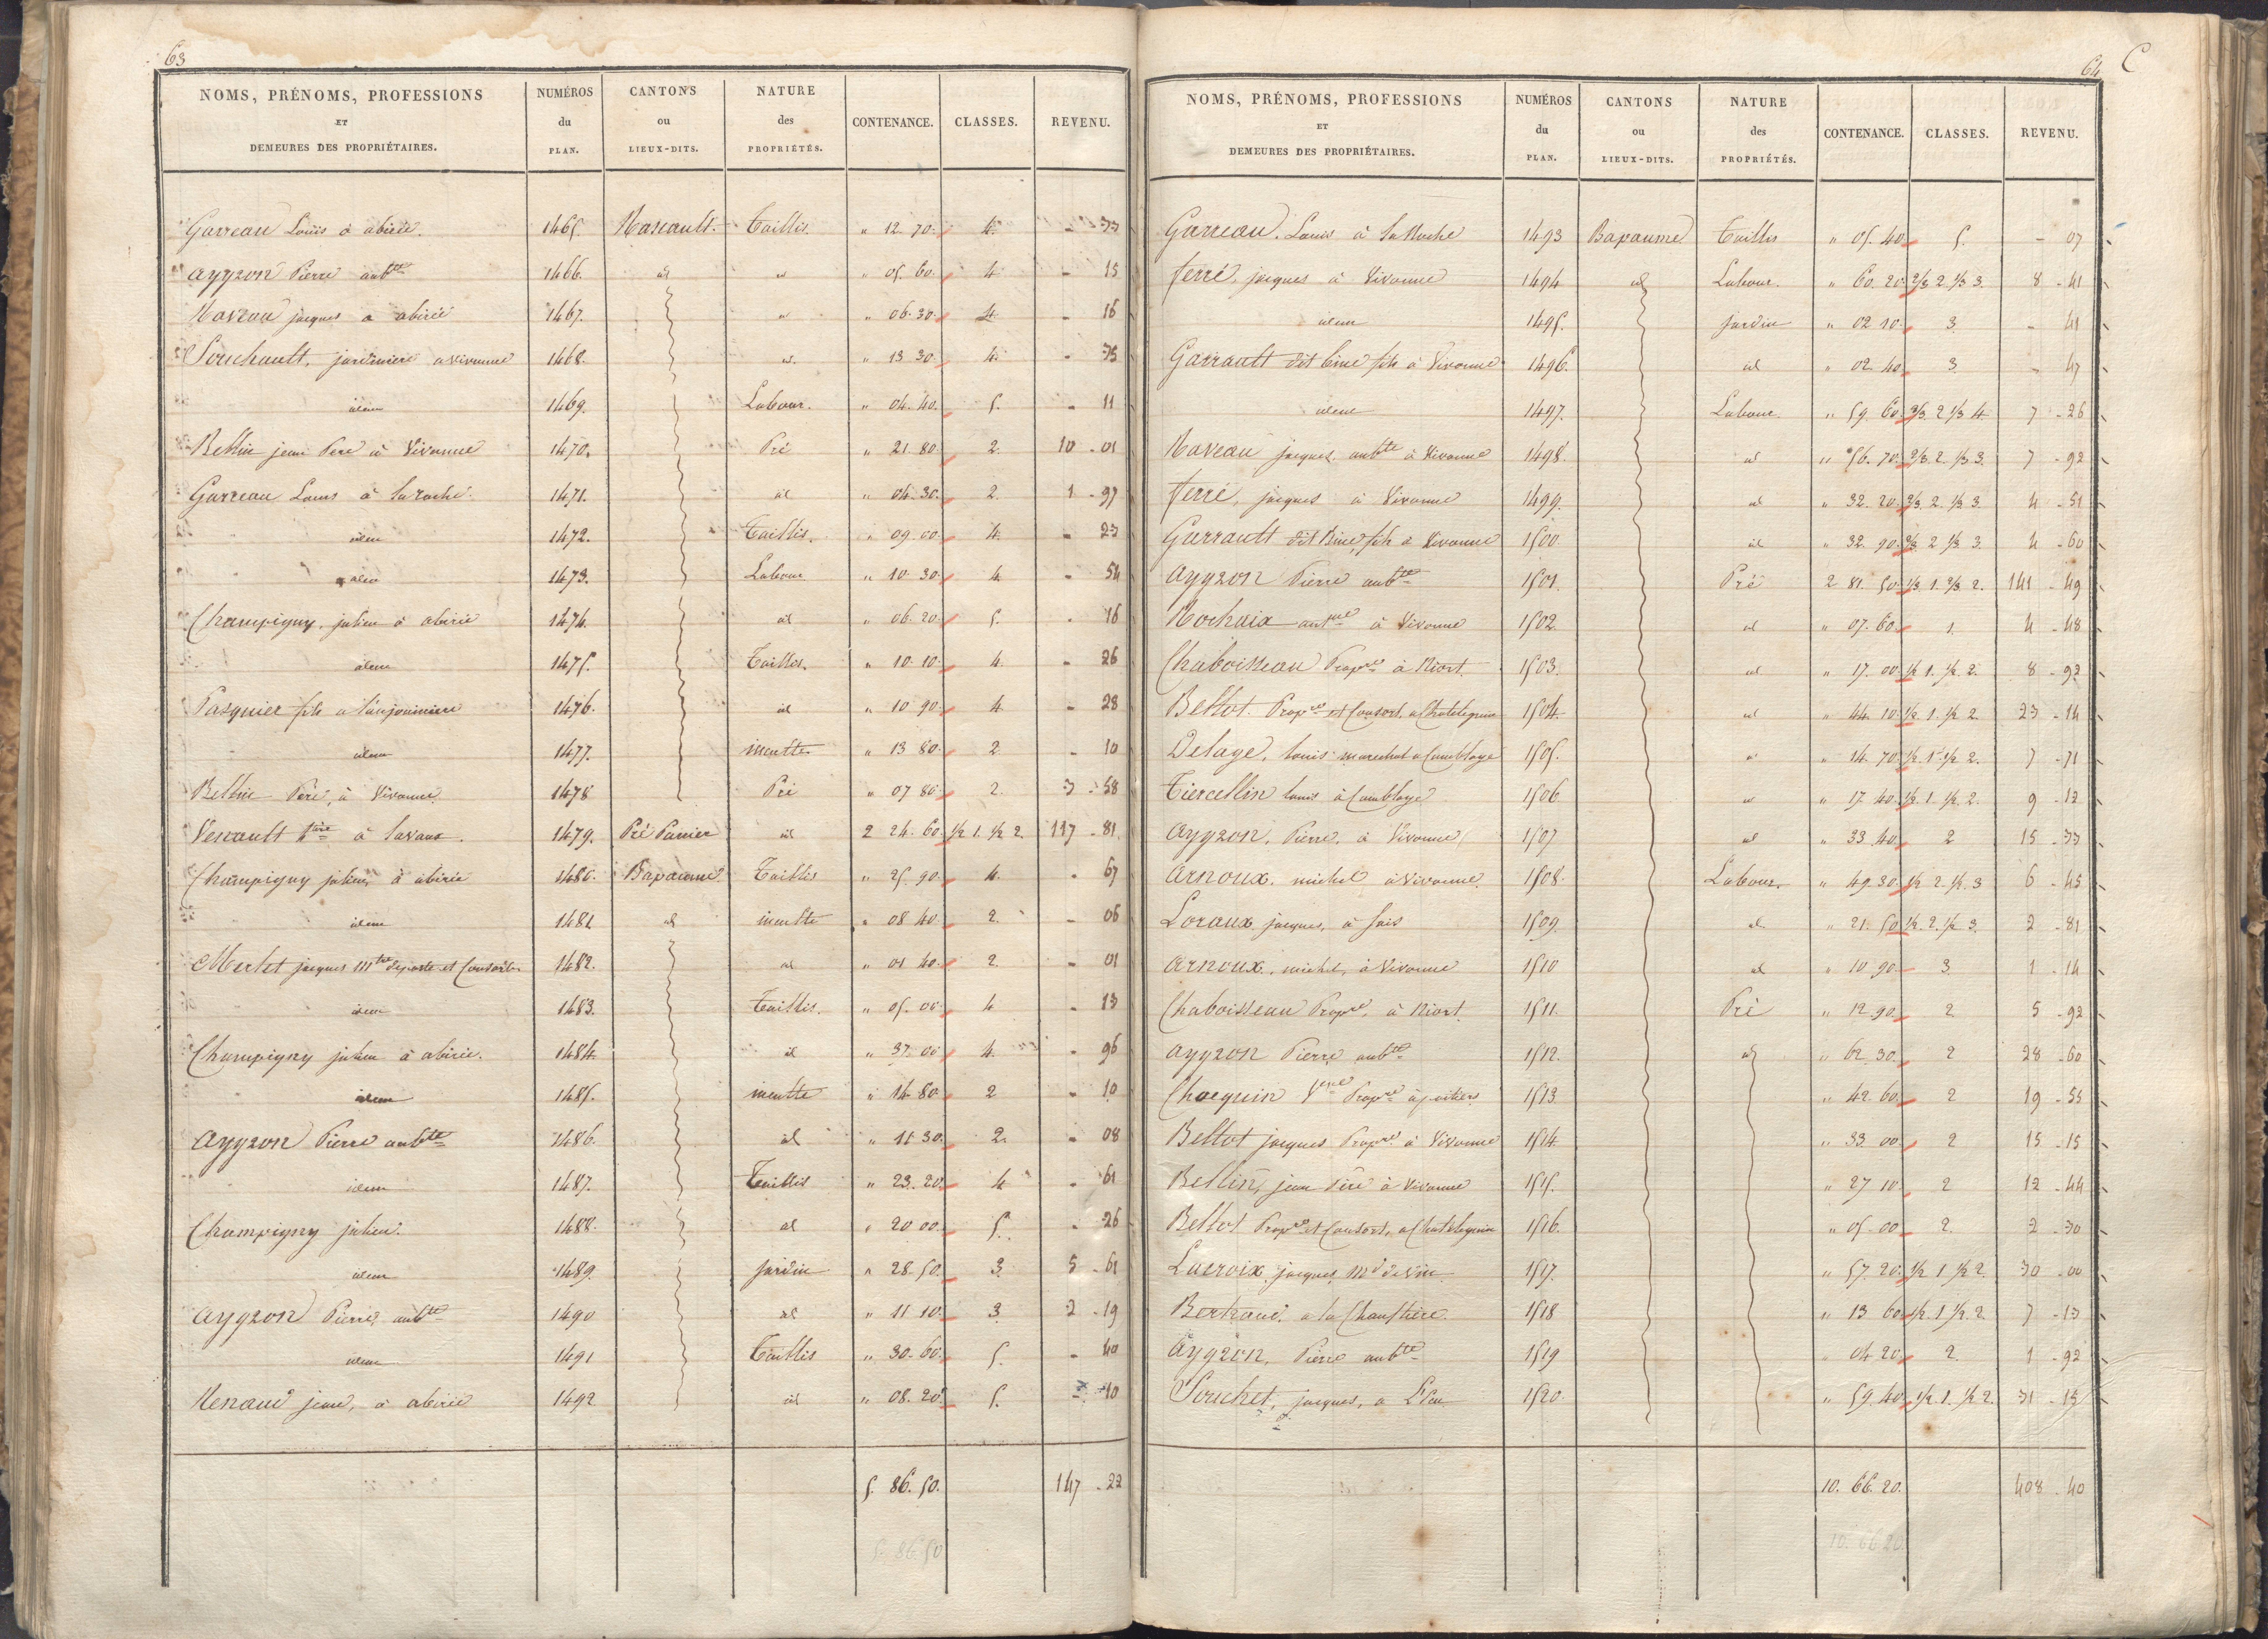 63
NOMS, PRÉNOMS, PROFESSIONS ET DEMEURES DES PROPRIÉTAIRES. NUMÉROS du PLAN. CANTONS ou LIEUX-DITS. NATURE des PROPRIÉTÉS. CONTENANCE. CLASSES. REVENU.
Garreau Louis à abirée. 1465 Taillis. " 12. 70. 4. - 33
ayzon Pierre aubte 1466. id id " 05. 60. 4 - 15
jacques a abirée 1467. id " 06. 30. 4 - 16
Souchault, jardinier a vivonne 1468. id. " 13 30. 4. - 35
idem 1469. Labour. " 04. 40. 5. - 11
Bellin jean Pere à Vivonne 1470. Pré " 21. 80. 2. 10 - 01
Garreau Louis à la roche. 1471. id " 04. 30. 2. 1 - 97
idem 1472. Taillis. " 09. 00. 4. - 23
idem 1473. Labour " 10. 30. 4. - 54
Champigny, julien à abirée 1474. id " 06. 20. 5. - 16
idem 1475. Taillis. " 10. 10. 4. - 26
Pasquier fils a 1476. id " 10 90. 4 - 28
idem 1477. inculte " 13 80. 2 - 10
Bellin Père, à Vivonne 1478 Pré " 07 80. 2. 3 - 58
Venault à lavaux. 1479. Pré Panier id 2 24. 60. 1/2 1. 1/2 2. 117 - 81.
Champigny julien, à abirée 1480. Bapaume Taillis " 25. 90. 4. - 67
idem 1481 id inculte " 08. 40. 2. - 06
Merlet jacques Mtre de poste et Consorts 1482. id " 01 40. 2. - 01
idem 1483. Taillis. " 05. 00. 4 - 13
Champigny julien à abirée. 1484. id " 37. 00 4. - 96
idem 1485. inculte " 14. 80. 2 - 10
ayzon Pierre aubte 1486. id " 11 30. 2. - 08
idem 1487. Taillis " 23. 20. 4 - 61
Champigny julien. 1488. id " 20 00. 5. - 26
idem 1489. jardin " 28. 50. 3. 5 - 61
ayzon Pierre, aubte 1490 id " 11. 10. 3. 2 - 19
idem 1491 Taillis " 30. 60. 5. - 40
jean, à abirée 1492 id " 08. 20. 5. - 10
5. 86. 50. 147 - 22
5. 86. 50
64 C
NOMS, PRÉNOMS, PROFESSIONS ET DEMEURES DES PROPRIÉTAIRES. NUMÉROS du PLAN. CANTONS ou LIEUX-DITS. NATURE des PROPRIÉTÉS. CONTENANCE. CLASSES. REVENU.
Garreau. Louis à la Roche 1493 Bapaume Taillis " 05. 40. 5. - 07
ferré, jacques à Vivonne 1494 id Labour. " 60. 20. 2/3 2. 1/3 3. 8 - 41
idem 1495. jardin " 02 10. 3. - 41
Garrault dit fils à Vivonne 1496. id " 02. 40. 3. - 47
idem 1497. Labour " 59. 60. 2/3. 2 1/3 4 7 - 26
jacques, aubte à Vivonne 1498. id " 56. 70. 2/3. 2. 1/3 3. 7 - 92
ferré, jacques à Vivonne 1499. id " 32. 20. 2/3. 2. 1/3 3. 4 - 51
Garrault dit fils à Vivonne 1500 id " 32. 90. 2/3. 2 1/3 3. 4 - 60
ayzon Pierre aubte 1501. Pré 2 81. 50. 1/3 1. 2/3 2. 141 - 49
Rochaix à Vivonne 1502. id " 07. 60. 1. 4 - 48
Chaboisseau Propre à Niort. 1503. id " 17. 00. 1/2 1. 1/2 2. 8 - 92
Bellot. Propre et Consort, a 1504. id " 44. 10. 1/2. 1. 1/2 2. 23 - 14
Delage, louis marechal a Comblaye 1505. id " 14. 70. 1/2. 1. 1/2 2. 7 - 71
Tiercellin louis à Comblaye 1506 id " 17. 40. 1/2. 1. 1/2 2. 9 - 12
ayzon, Pierre, à Vivonne 1507 id " 33 40. 2 15 - 33
arnoux, michel à Vivonne. 1508. Labour. " 49. 30. 1/2 2. 1/2. 3 6 - 45
Loraux jacques, à 1509. id. " 21. 50 1/2. 2. 1/2 3. 2 - 81
arnoux, michel, à Vivonne 1510 id " 10 90. 3. 1 - 14
Chaboisseau Propre, à Niort. 1511. Pré " 12 90. 2. 5 - 92
ayzon Pierre, aubte 1512. id " 62 30. 2 28 - 60
Chocquin Veuve Propre à poitiers 1513. " 42. 60. 2 19 - 55
Bellot jacques Propre à Vivonne 1514. " 33 00. 2 15 - 15
Bellin, jean Père à Vivonne 1515. " 27 10. 2 12 - 44
Bellot Propre et Consort, a 1516. " 05. 00. 2. 2 - 30
Lacroix, jacques, Md de Vin 1517. " 57. 20. 1/2 1 1/2 2. 30 - 00
a la 1518 " 13 60. 1/2. 1 1/2. 2. 7 - 13
ayzon, Pierre aubte 1519 " 04 20. 2. 1 - 92
Souchet, jacques, a 1520. " 59. 40. 1/2. 1. 1/2 2. 31 - 15
10. 66. 20. 408 - 40
10. 66 20.